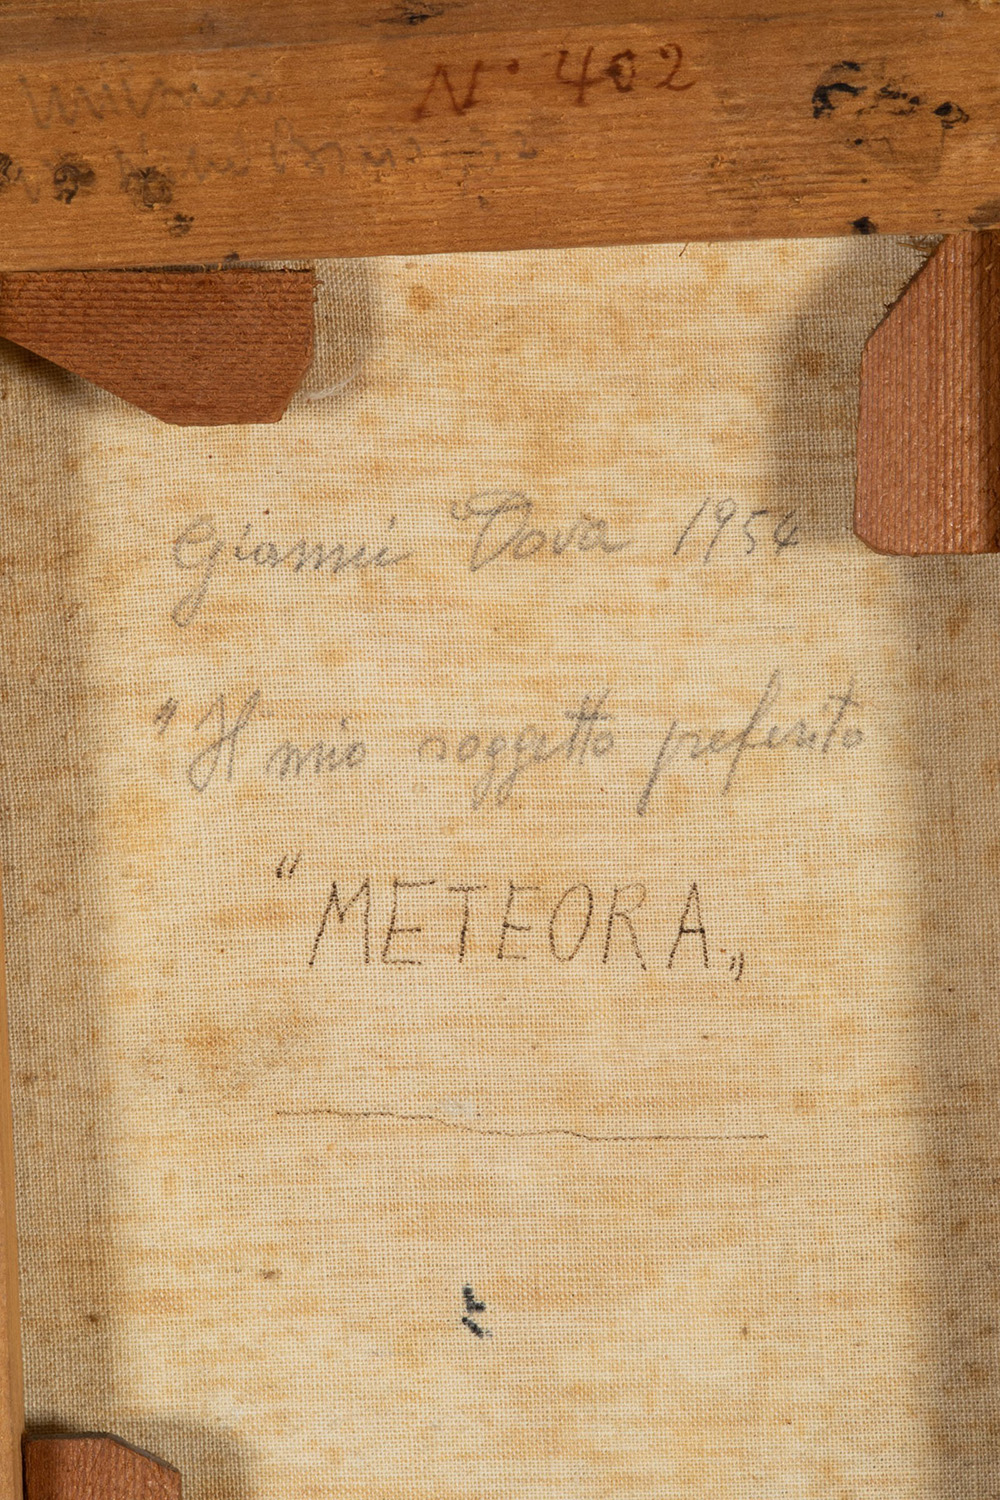 N° 402
Gianni Dova 1954
"Il mio soggetto preferito
"METEORA„